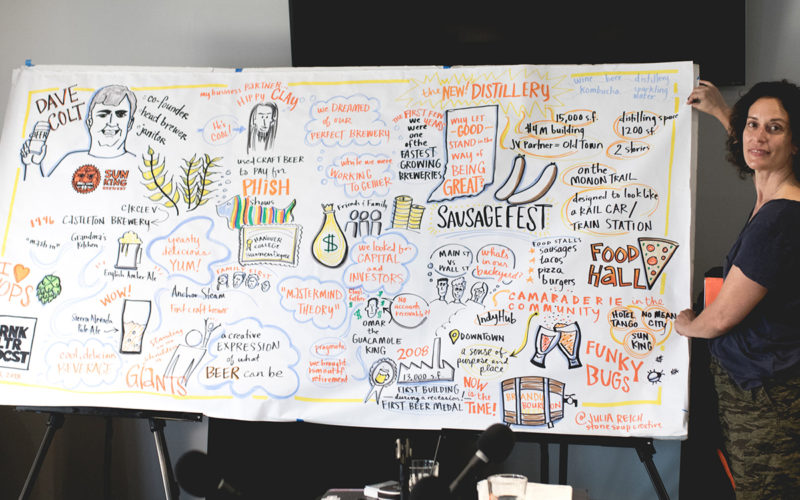 DAVE
COLT
co-founder
head brewer
janitor
SUN
KING
my business PARTNER -
HIPPY CLAY
He's
COOL!
used CRAFT BEER
to PAY for
PHISH
Shows
HANOVER
COLLEGE
Business Degree
CIRCLE V
1996 CASTLETON BREWERY
"mash in"
Grandma's
Kitchen
English Amber Ale
yeasty
delicious
YUM!
I
HOPS
WOW!
Sierra Nevada
Pale Ale
Anchor Steam
First craft brewer
cool, delicious
BEVERAGE
Standing
on the
shoulders
of
GIANTS
a creative
EXPRESSION
of what
BEER can be
FAMILY FIRST
we DREAMED
of our
PERFECT BREWERY
while we were
WORKING TO
GETHER
Friends & Family
$
we looked for
CAPITAL
and
INVESTORS
"MASTERMIND
THEORY"
pragmatic
we brought
him out of
retirement
OMAR
the
GUACAMOLE
KING
No
accounts
receivable!
2008
13,000 s.f.
FIRST BUILDING
during a recession!
FIRST BEER MEDAL
the NEW! DISTILLERY
THE FIRST FEW
YEARS
we were
one
of the
FASTEST
GROWING
BREWERIES
WHY LET
GOOD
STAND in the
WAY of
BEING
GREAT?
SAUSAGEFEST
MAIN ST
vs
WALL ST
what's
in our
backyard?
IndyHub
DOWNTOWN
a sense of
purpose and
place
NOW
is the
TIME!
BRANDY
BOURBON
wine beer distillery
kombucha sparkling
water
15,000 s.f.
$4M building
JV Partner = Old Town
distilling space
1200 s.f.
2 stories
on the
MONON TRAIL
designed to look like
a RAIL CAR/
TRAIN STATION
FOOD STALLS
sausages
tacos
pizza
burgers
FOOD
HALL
CAMARADERIE in the
COMMUNITY
HOTEL
TANGO
NO MEAN
CITY
SUN
KING
FUNKY
BUGS
@JULIA REICH
stone soup creative